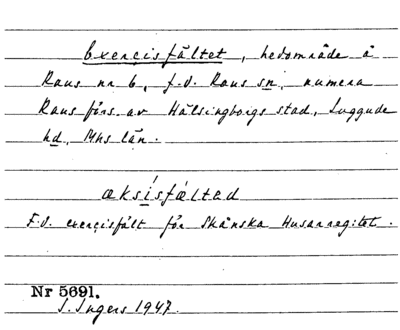 Exercisfältet, hedområde å
Raus nr 6, f.d. Raus sn, numera
Raus förs. av Hälsingborgs stad, Luggude
hd, Mhs län.
æksísfæ̀ltəd
F.d. exercisfält för Skånska Husarregitet.
Nr 5691.
I. Ingers 1947.